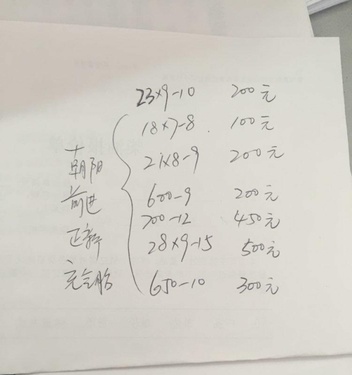 23×9-10 200元
18×7-8 100元
朝阳 21×8-9 200元
前进 600-9 200元
700-12 450元
正新 28×9-15 500元
充气胎 650-10 300元